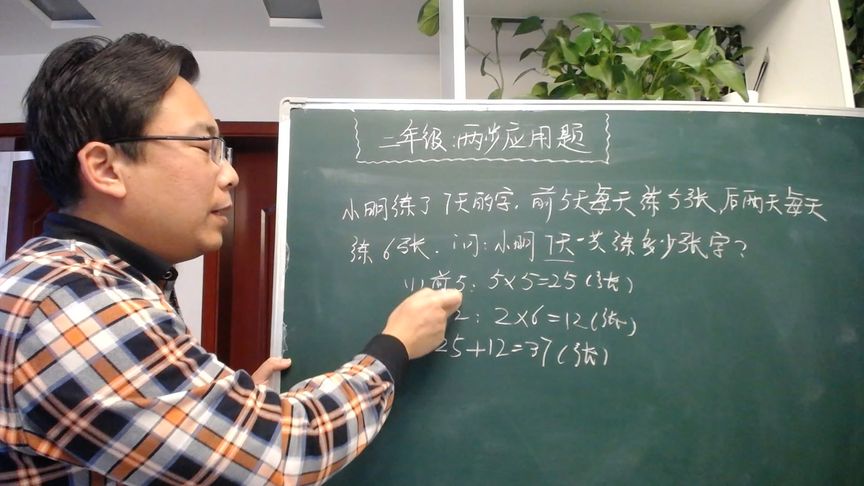 二年级:两步应用题
小明练了7天的字,前5天每天练5张,后两天每天
练6张.问:小明7天一共练多少张字?
(1)前5:5×5=25(张)
2:2×6=12(张)
25+12=37(张)